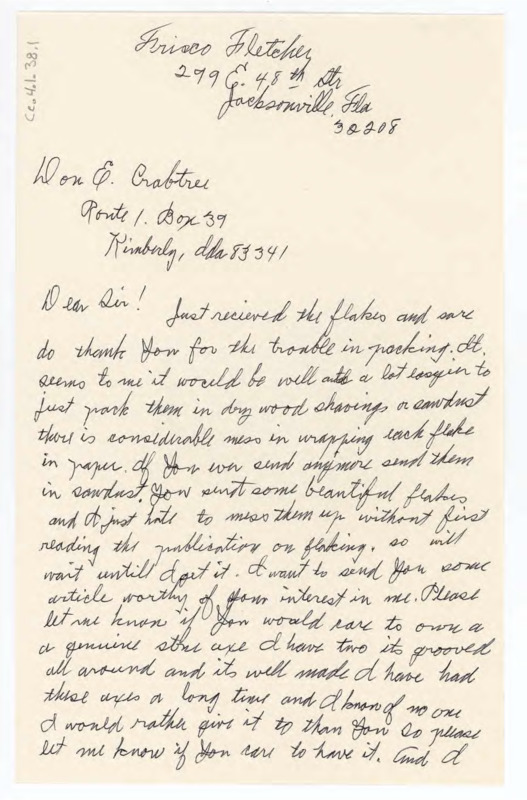 Cc.41.38.1
Frisco Fletcher
299 E. 48th Str
Jacksonville, Fla
32208
Don E. Crabtree
Route 1. Box 39
Kimberly, Ida 83341
Dear Sir! Just recieved the flakes and sure
do thank You for the trouble in packing. It
seems to me it would be well and a lot easyier to
just pack them in dry wood shavings or sawdust
there is considerable mess in wrapping each flake
in paper. If You ever send anymore send them
in sawdust. You sent some beautiful flakes
and I just hate to mess them up without first
reading the publication on flaking. so will
wait untill I get it. I want to send You some
article worthy of Your interest in me. Please
let me know if You would care to own a
a genuine stone axe I have two its grooved
all around and its well made I have had
these axes a long time and I know of no one
I would rather give it to than You So please
let me know if You care to have it. And I